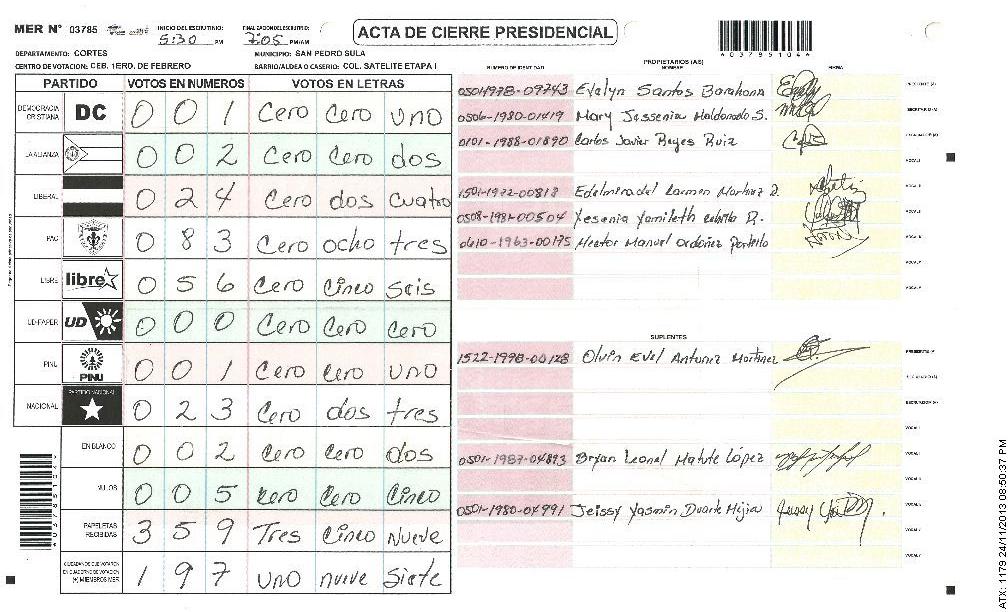 MER N° 03785
INICIO DEL ESCRUTINIO: 5:30 PM
FINALIZACION DEL ESCRUTINIO: 7:05 PM/AM
ACTA DE CIERRE PRESIDENCIAL
DEPARTAMENTO: CORTES
MUNICIPIO: SAN PEDRO SULA
CENTRO DE VOTACION: CEB. 1ERO. DE FEBRERO
BARRIO/ALDEA O CASERIO: COL. SATELITE ETAPA I
PARTIDO VOTOS EN NUMEROS VOTOS EN LETRAS
DEMOCRACIA CRISTIANA DC 0 0 1 Cero Cero uno
LA ALIANZA 0 0 2 Cero Cero dos
LIBERAL 0 2 4 Cero dos cuatro
PAC 0 8 3 Cero ocho tres
LIBRE libre 0 5 6 Cero Cinco Seis
UD-FAPER UD 0 0 0 Cero Cero Cero
PINU PINU 0 0 1 Cero Cero uno
NACIONAL PARTIDO NACIONAL 0 2 3 Cero dos tres
EN BLANCO 0 0 2 Cero Cero dos
NULOS 0 0 5 Cero Cinco
PAPELETAS RECIBIDAS 3 5 9 Tres Cinco Nueve
CIUDADANOS QUE VOTARON EN CUADERNO DE VOTACION (+) MIEMBROS MER 1 9 7 uno nueve Siete
PROPIETARIOS (AS)
NUMERO DE IDENTIDAD NOMBRE FIRMA
Evelyn Santos Barahona PRESIDENTE (A)
0506-1980-01419 Mary Jessenia Maldonado S. SECRETARIO (A)
0101-1988-01890 Carlos Javier Reyes Ruiz ESCRUTADOR (A)
VOCAL I
1501-1972-00818 Edelmira del Carmen Martinez
Yesenia Yamileth
0610-1963-00175 Hector Manuel Ordoñez Portillo
SUPLENTES
1522-1998-00128 Olvin Evel Antunez Martinez
VOCAL I
0501-1987-04893 Bryan Leonel Matute López
0501-1980-04991 Jeissy Yasmin Duarte Mejia
ATX: 1179 24/11/2013 08:50:37 PM